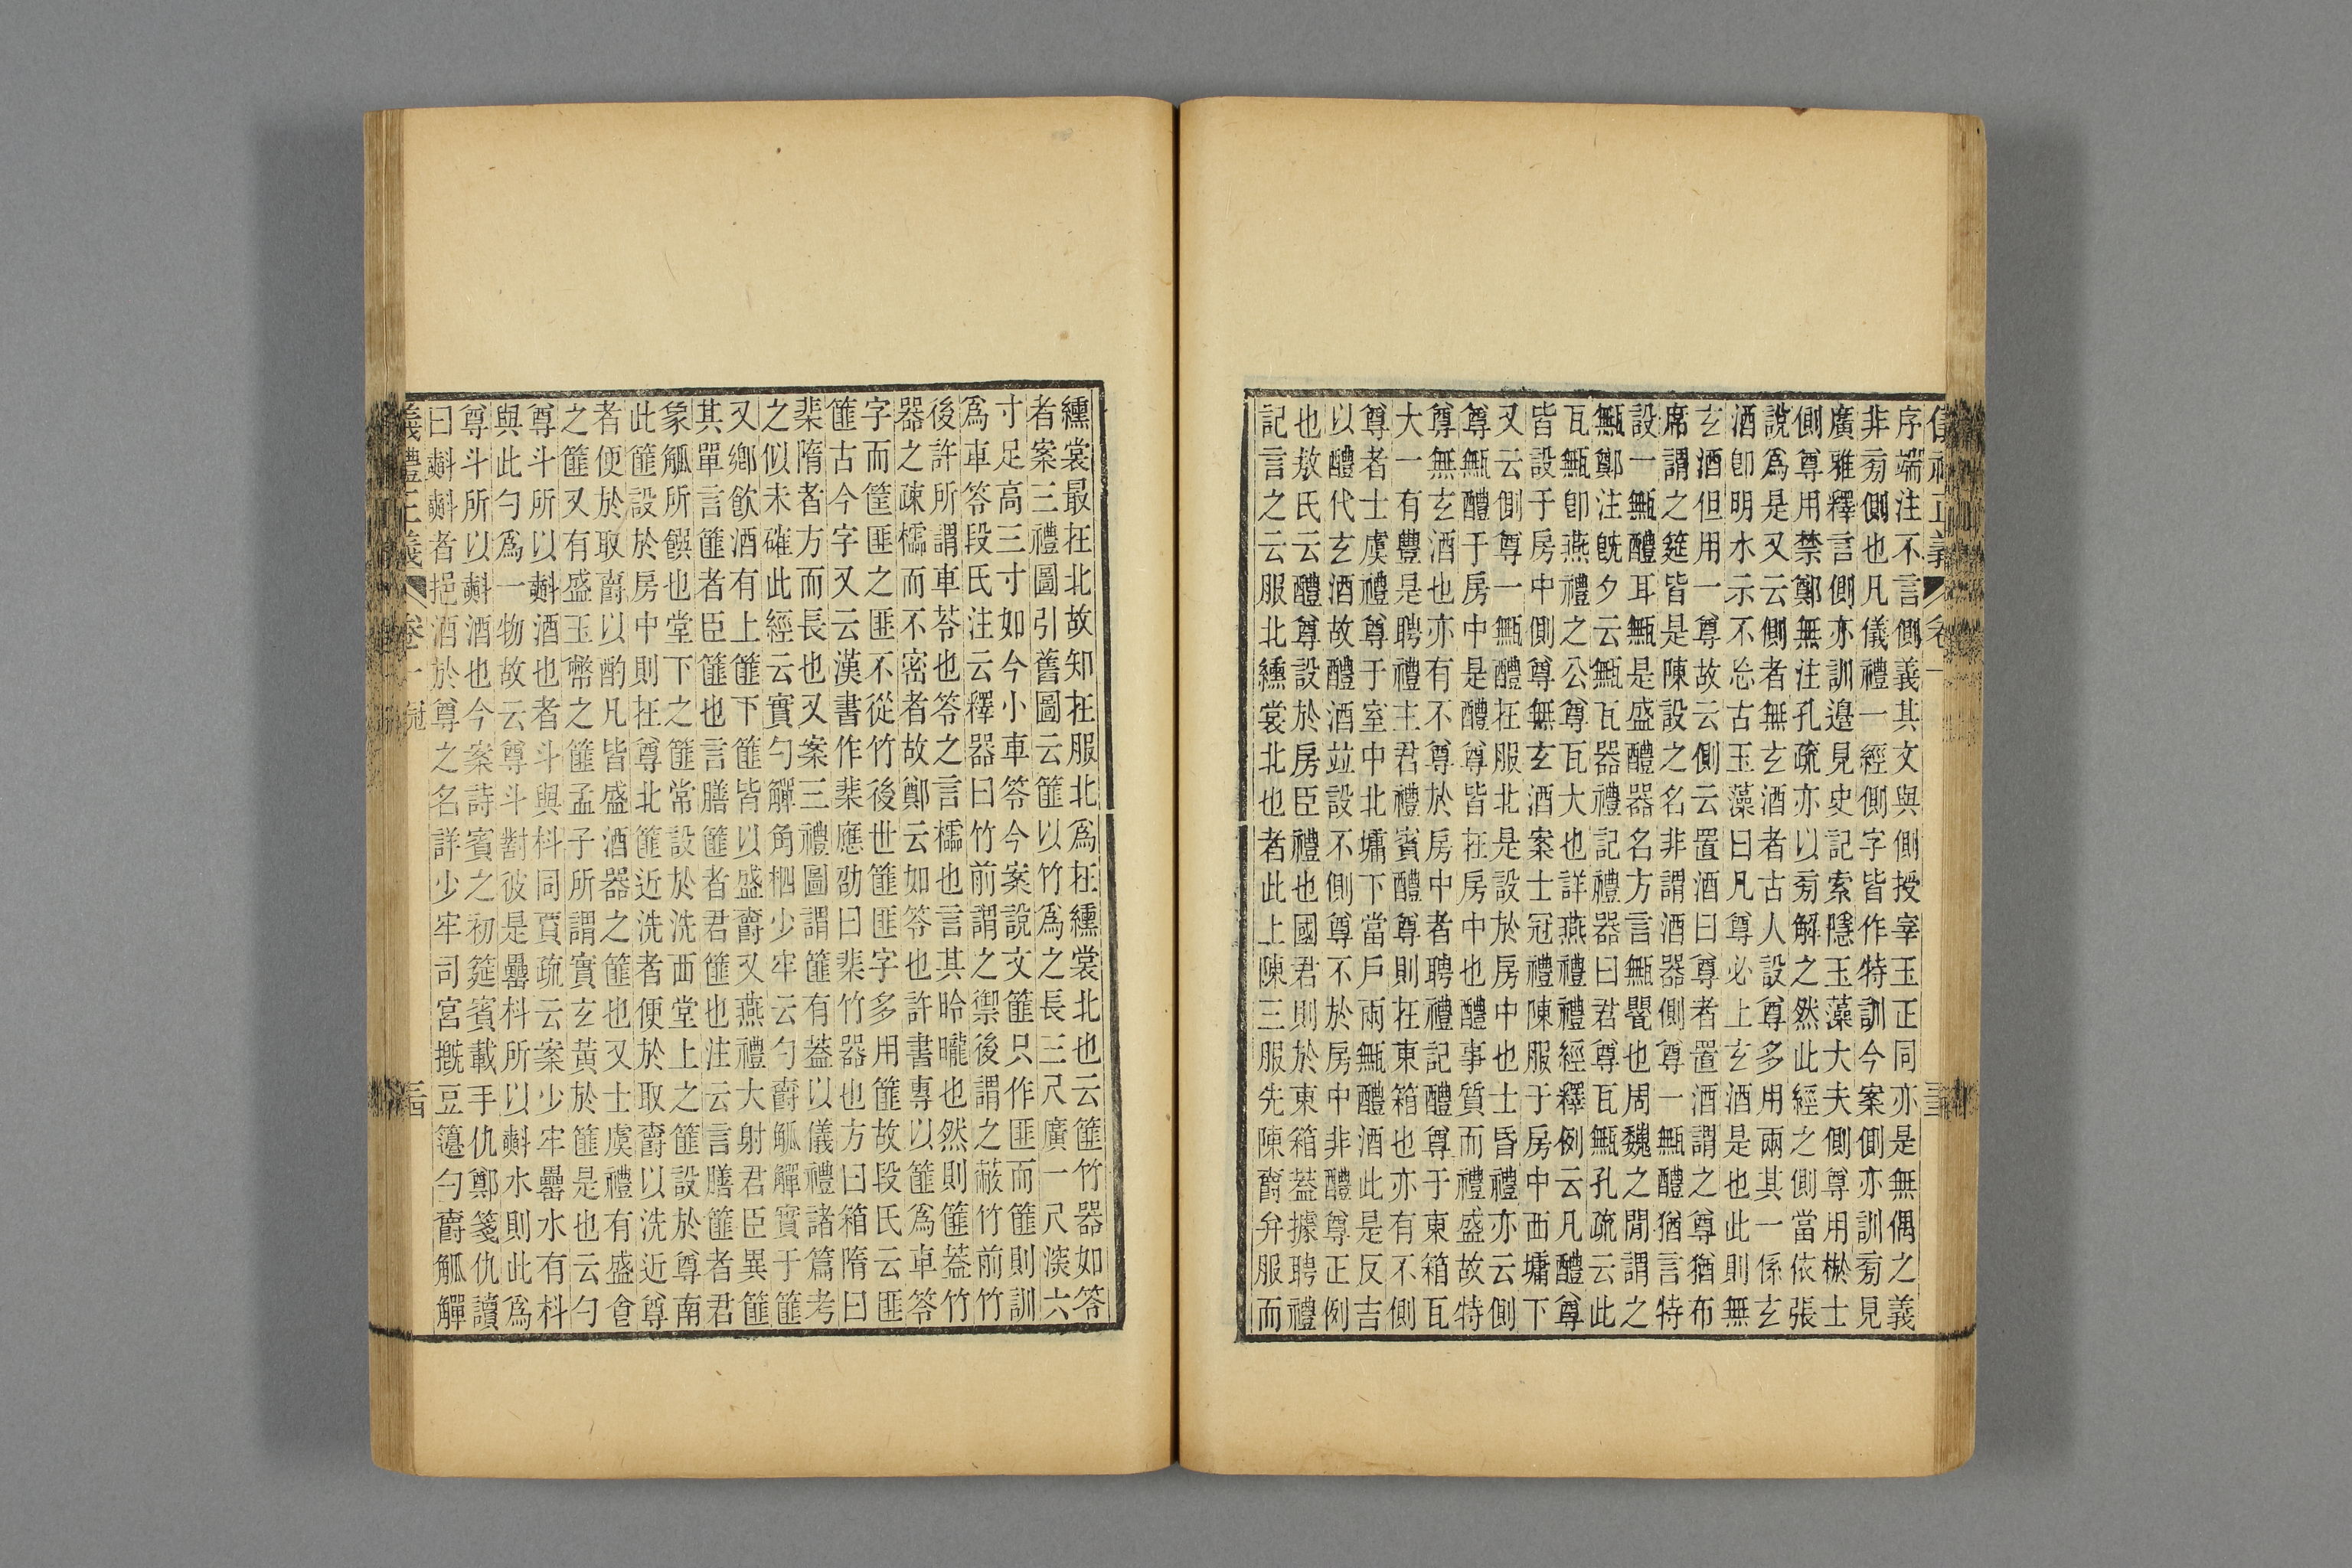 序端注不言側義其文與側授宰玉正同亦是無偶之義
非㫄側也凡儀禮一經側字皆作特訓今案側亦訓㫄見
廣雅釋言側亦訓邉見史記索隱玉藻大夫側尊用棜士
側尊用禁鄭無注孔疏亦以㫄解之然此經之側當依張
說爲是又云側者無玄酒者古人設尊多用兩其一係玄
酒卽明水示不忘古玉藻曰凡尊必上玄酒是也此則無
玄酒但用一尊故云側云置酒曰尊者置酒謂之尊猶布
席謂之筵皆是陳設之名非謂酒器側尊一甒醴猶言特
設一甒醴耳甒是盛醴器名方言甒甖也周魏之閒謂之
甒鄭注旣夕云甒瓦器禮記禮器曰君尊瓦甒孔疏云此
瓦甒卽燕禮之公尊瓦大也詳燕禮禮經釋例云凡醴尊
皆設于房中側尊無玄酒案士冠禮陳服于房中西墉下
又云側尊一甒醴在服北是設於房中也士昏禮亦云側
尊甒醴于房中是醴尊皆在房中也醴事質而禮盛故特
尊無玄酒也亦有不尊於房中者聘禮記醴尊于東箱瓦
大一有豐是聘禮主君禮賓醴尊則在東箱也亦有不側
尊者士虞禮尊于室中北墉下當戶兩甒醴酒此是反吉
以醴代玄酒故醴酒竝設不側尊不於房中非醴尊正例
也敖氏云醴尊設於房臣禮也國君則於東箱蓋據聘禮
記言之云服北纁裳北也者此上陳三服先陳爵弁服而
纁裳最在北故知在服北爲在纁裳北也云篚竹器如笭
者案三禮圖引舊圖云篚以竹爲之長三尺廣一尺深六
寸足高三寸如今小車笭今案說文篚只作匪而篚則訓
爲車笭段氏注云釋器曰竹前謂之禦後謂之蔽竹前竹
後許所謂車笭也笭之言櫺也言其昤曨也然則篚蓋竹
器之疎櫺而不密者故鄭云如笭也許書專以篚爲車笭
字而筐匪之匪不從竹後世篚匪字多用篚故段氏云匪
篚古今字又云漢書作棐應劭曰棐竹器也方曰箱隋曰
棐隋者方而長也又案三禮圖謂篚有蓋以儀禮諸篇考
之似未確此經云實勺觶角柶少牢云勺爵觚觶實于篚
又鄉飲酒有上篚下篚皆以盛爵又燕禮大射君臣異篚
其單言篚者臣篚也言膳篚者君篚也注云言膳篚者君
象觚所饌也堂下之篚常設於洗西堂上之篚設於尊南
此篚設於房中則在尊北篚近洗者便於取爵以洗近尊
者便於取爵以酌凡皆盛酒器之篚也又士虞禮有盛食
之篚又有盛玉幣之篚孟子所謂實玄黃於篚是也云勺
尊斗所以㪺酒也者斗與枓同賈疏云案少牢罍水有枓
與此勺爲一物故云尊斗對彼是罍枓所以㪺水則此爲
尊斗所以㪺酒也今案詩賓之初筵賓載手仇鄭箋仇讀
曰㪺㪺者挹酒於尊之名詳少牢司宮摡豆籩勺爵觚觶